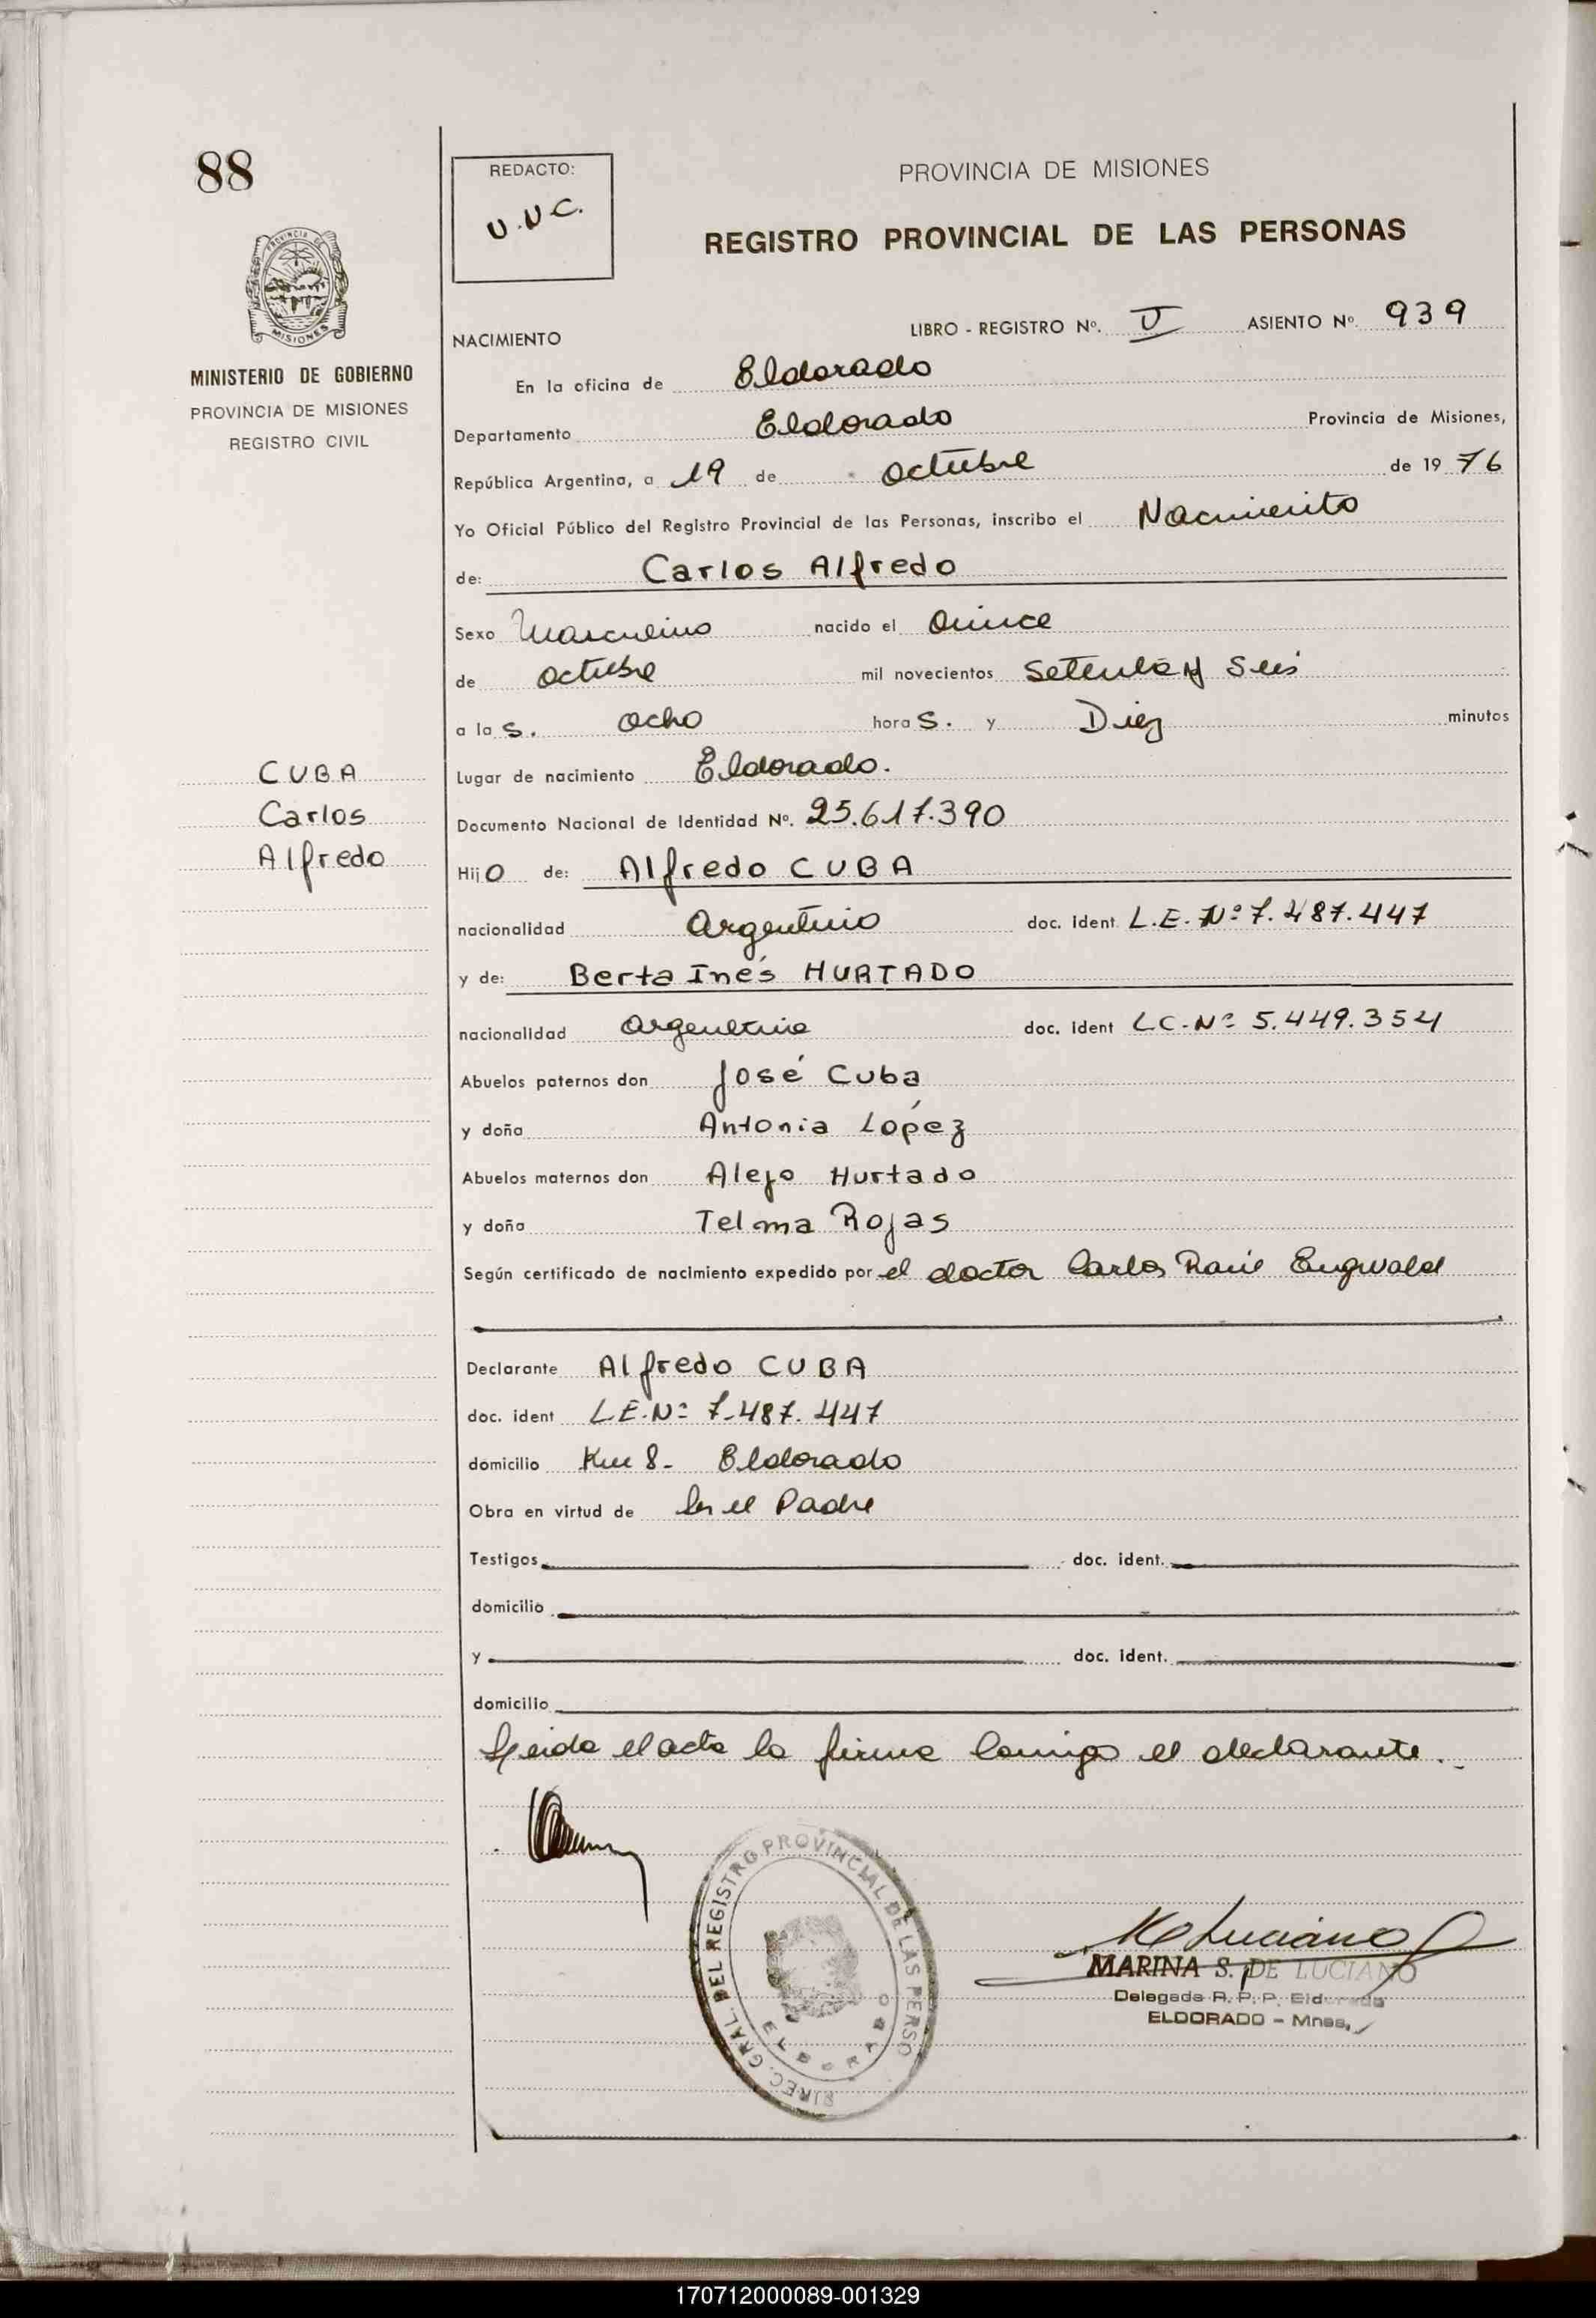 88
PROVINCIA DE
MISIONES
MINISTERIO DE GOBIERNO
PROVINCIA DE MISIONES
REGISTRO CIVIL
REDACTO:
U.N.C.
PROVINCIA DE MISIONES
REGISTRO PROVINCIAL DE LAS PERSONAS
LIBRO - REGISTRO Nº. V ASIENTO Nº. 939
NACIMIENTO
En la oficina de Eldorado
Departamento Eldorado Provincia de Misiones,
República Argentina, a 19 de octubre de 1976
Yo Oficial Público del Registro Provincial de las Personas, inscribo el Nacimiento
de: Carlos Alfredo
Sexo Masculino nacido el Quince
de octubre mil novecientos Setenta y Seis
a las. ocho horas. y Diez minutos
Lugar de nacimiento Eldorado.
Documento Nacional de Identidad Nº. 25.617.390
CUBA
Carlos
Alfredo
Hijo de: Alfredo CUBA
nacionalidad Argentino doc. ident L.E. Nº 7.487.447
y de: Berta Inés HURTADO
nacionalidad Argentina doc. ident L.C. Nº 5.449.354
Abuelos paternos don José Cuba
y doña Antonia López
Abuelos maternos don Alejo Hurtado
y doña Telma Rojas
Según certificado de nacimiento expedido por el doctor Carlos Raúl Engwald
Declarante Alfredo CUBA
doc. ident L.E. Nº 7.487.447
domicilio Km 8- Eldorado
Obra en virtud de Ser el Padre
Testigos doc. ident.
domicilio
y doc. ident.
domicilio
Leida el acta la firma conmigo el declarante.
DIREC. GRAL. DEL REGISTRO PROVINCIAL DE LAS PERSO
ELDORADO
MARINA S. DE LUCIANO
Delegada R. P. P. Eldorado
ELDORADO - Mnes.
170712000089-001329